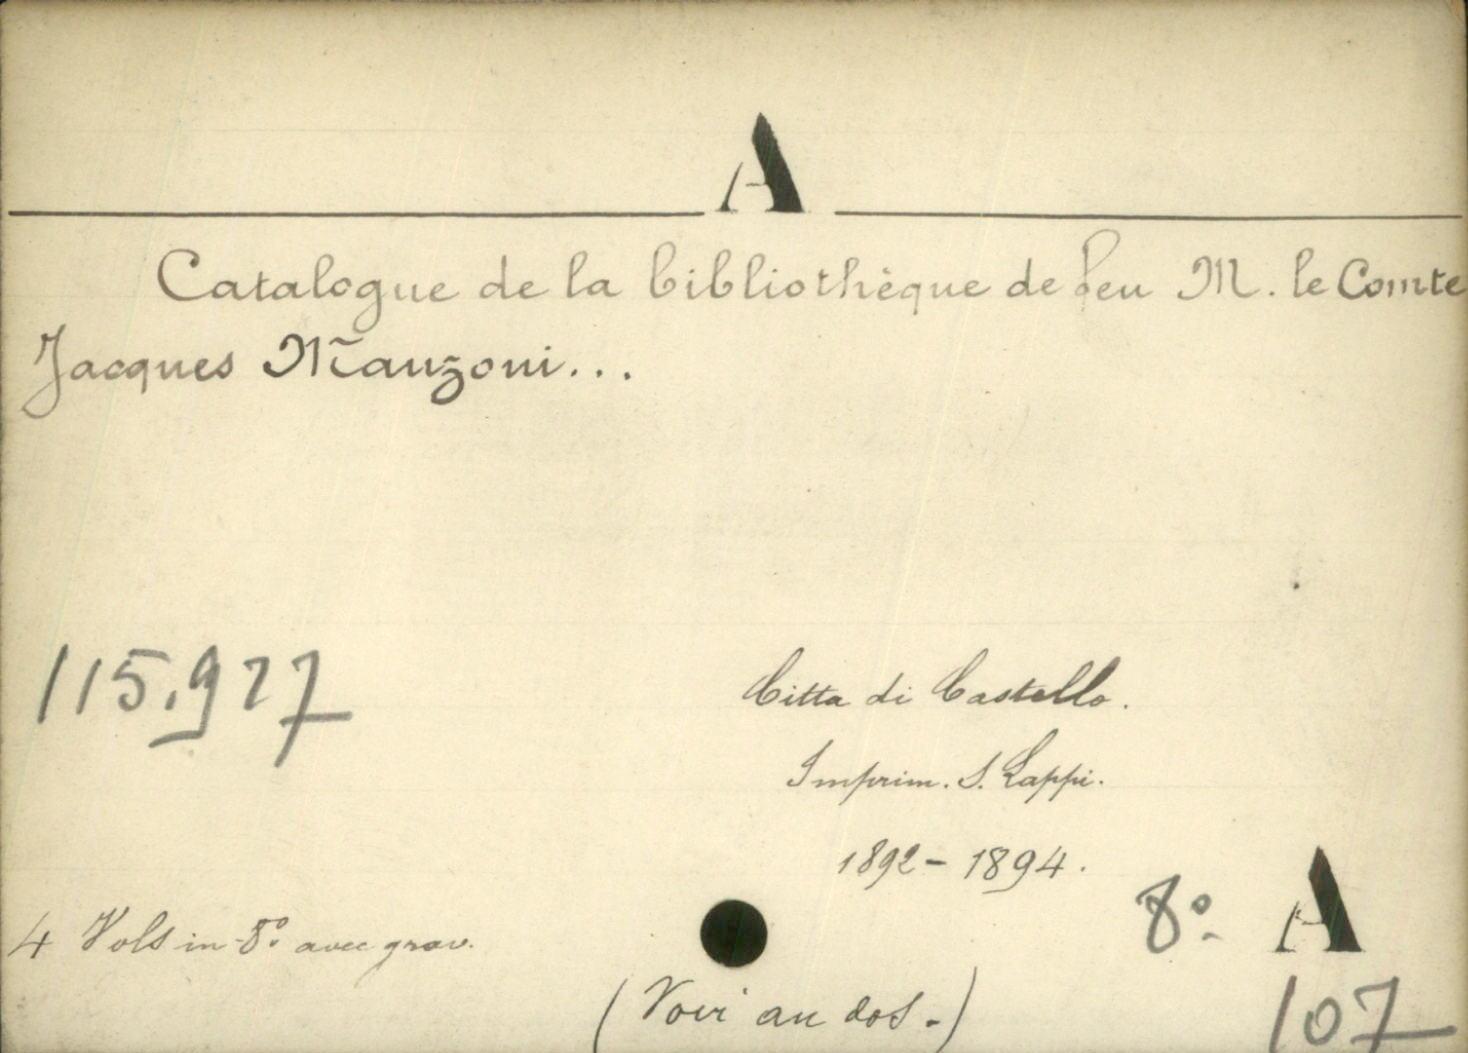 A
Catalogue de la bibliothèque de feu M. le Comte
Jacques Manzoni...
115.927
Citta di Castello.
Imprim. S. Lappi.
1892 - 1894.
4 Vols in-8° avec grav.
8° A
107
(Voir au dos.)